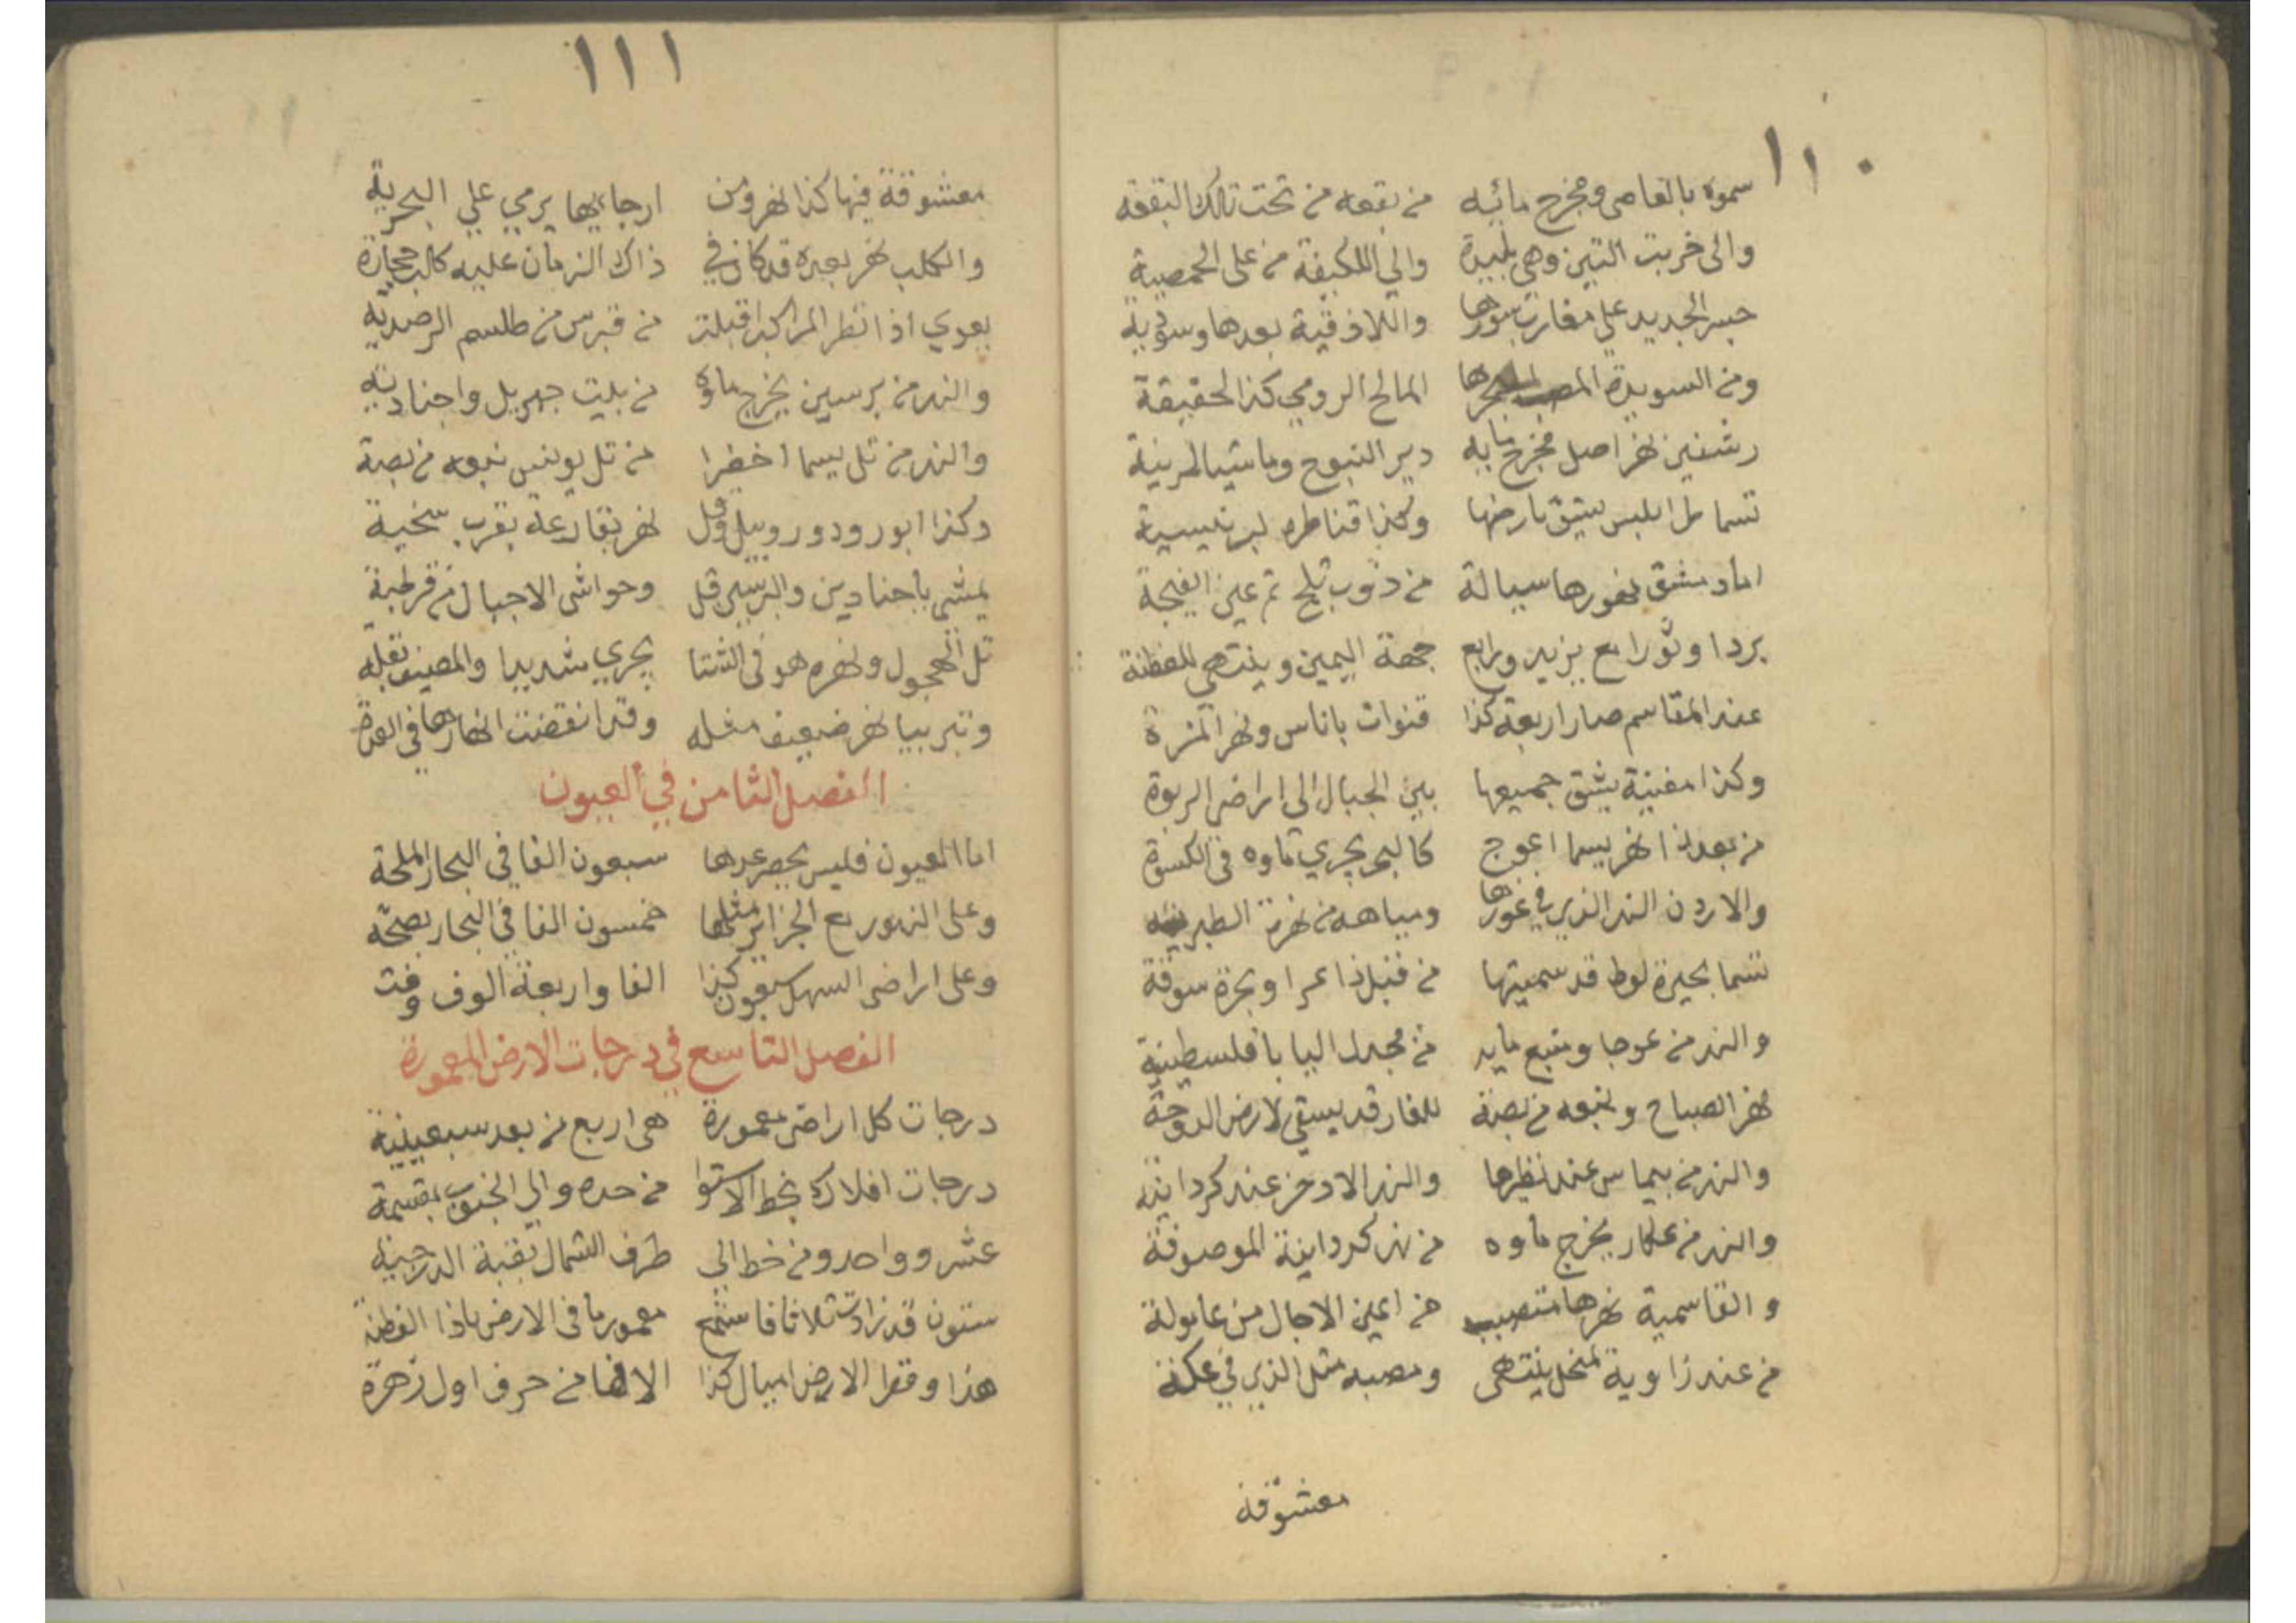 ١١٠
سموه بالعاصي ومخرج مائيه من بقعه من تحت تلك البقعة
والى خربت التين وهي بليدة والي اللكيفة من على الحمصية
جسر الحديد على مغارت سورها واللاذقية بعدها وسؤدية
ومن السويدة المصب المالح الرومي كذا لحقيقة
رشعين نهر اصل مخرج مايه دير النبوح وماشيا لمرينية
تسما طرابلس يشق بارضها وكذا قناطره لبرنسية
اما دمشق نهورها سيالة من ذوب ثلج ثم عين الفيجة
بردا وثورا مع يزيد ورابع جهة اليمين وينتهي للفطنة
عند المقاسم صار اربعة كذا قنوات باناس ونهر المزة
وكذا مغنية يشق جميعها بين الجبال الى اراضي الربوة
من بعد ذا نهر يسما اعوج كالبحر يجري ماوه في الكسوة
والاردن النهر الذي في غورها ومياهه من نهرة الطبرية
تسما بحيرة لوط قد سميتها من قبل ذا عمرا وبحرة سوقة
والنهر من عوجا ومنبع مايه من مجدل اليابا فلسطينية
نهر الصباح ونبعه من بصة للغار قد يسقي لارض الدوحة
والنهر من بيماس عند نظيرها والنهر الادخر عند كردانية
والنهر من عكار يخرج ماوه من نهر كردانية الموصوفة
والقاسمية نهرها متصبب من اعين الاجال من عابولة
من عند زاوية لنخل ينتهى ومصبه مثل الذي في عكة
معشوقة
١١١
معشوقة فيها كذا نهر ومن ارجايها يرمي على البحرية
والكلب نهر بعده قد كان في ذاك الزمان عليه كالب حجارة
يعوي اذا نظر المراكب اقبلت من قبرس من طلسم الرصدية
والنهر من برسين يخرج ماوه من بليت جهربل واجنادية
والنهر من تل يسما اخضرا من تل يونس نبعه من بصة
وكذا ابورود ودوروبيل وقل نهر بقارعة بقرب سخية
يمشي باجنادين والبرسين قل وحواشى الاجبال من قرطبة
تل العجول ونهره هو في الشتا يجري شديدا والمصيف بقلة
وتبربيا نهر ضعيف مثله وقد انقضت انهارها في العدة
الفصل الثامن في العيون
اما العيون فليس يحصر عدها سبعون الفا في البحار الملحة
وعلى النهور مع الجزائر مثلها خمسون الفا في البحار بصحة
وعلى اراضي السهل سبعون كذا الفا واربعة الوف وفت
الفصل التاسع في درجات الارض المعمورة
درجات كل اراضي معمورة هى اربع من بعد سبعينية
درجات افلاك بخط الاستوا من حده والي الجنوب بقسمة
عشر وواحد ومن خط الى طرف الشمال بقبة الدرجية
ستون قد زادت ثلاثا فاستمع معمور ما في الارض ياذا الفطنة
هذا وقطر الارض اميال كذا الالفا من حرف اول زهرة